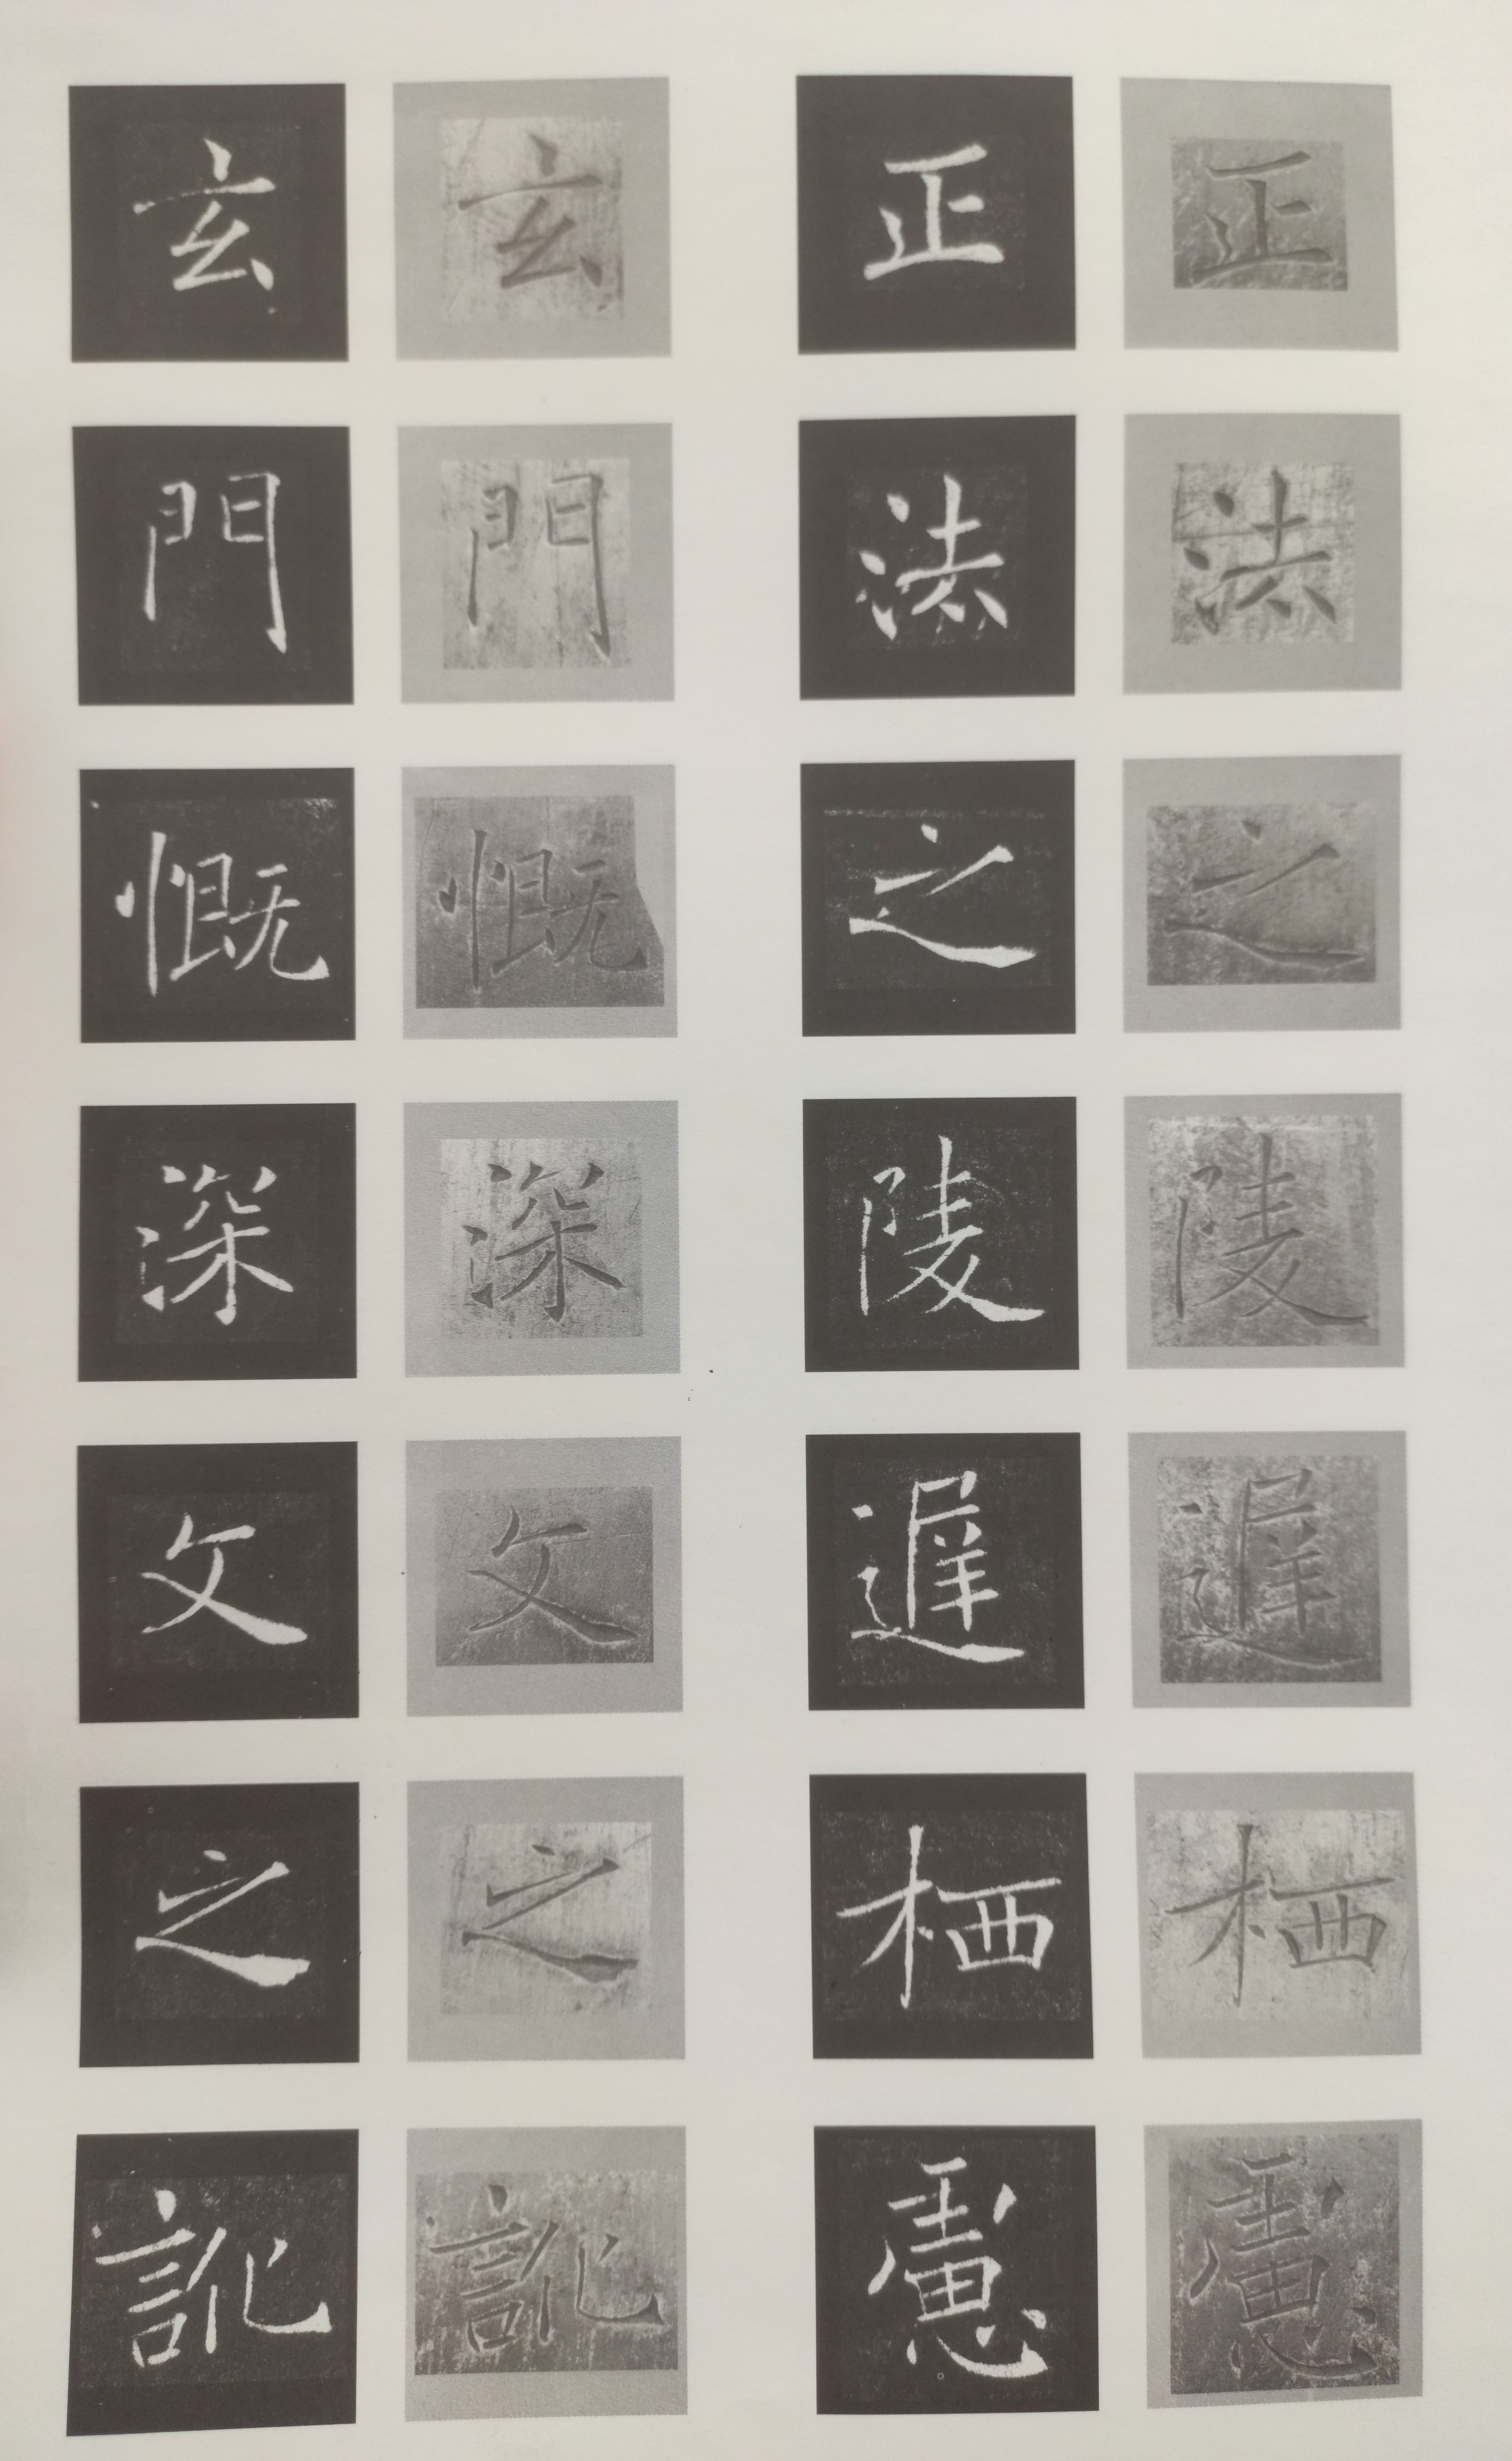 正法之陵遲栖慮
正法之陵遲栖慮
玄門慨深文之訛
玄門慨深文之訛